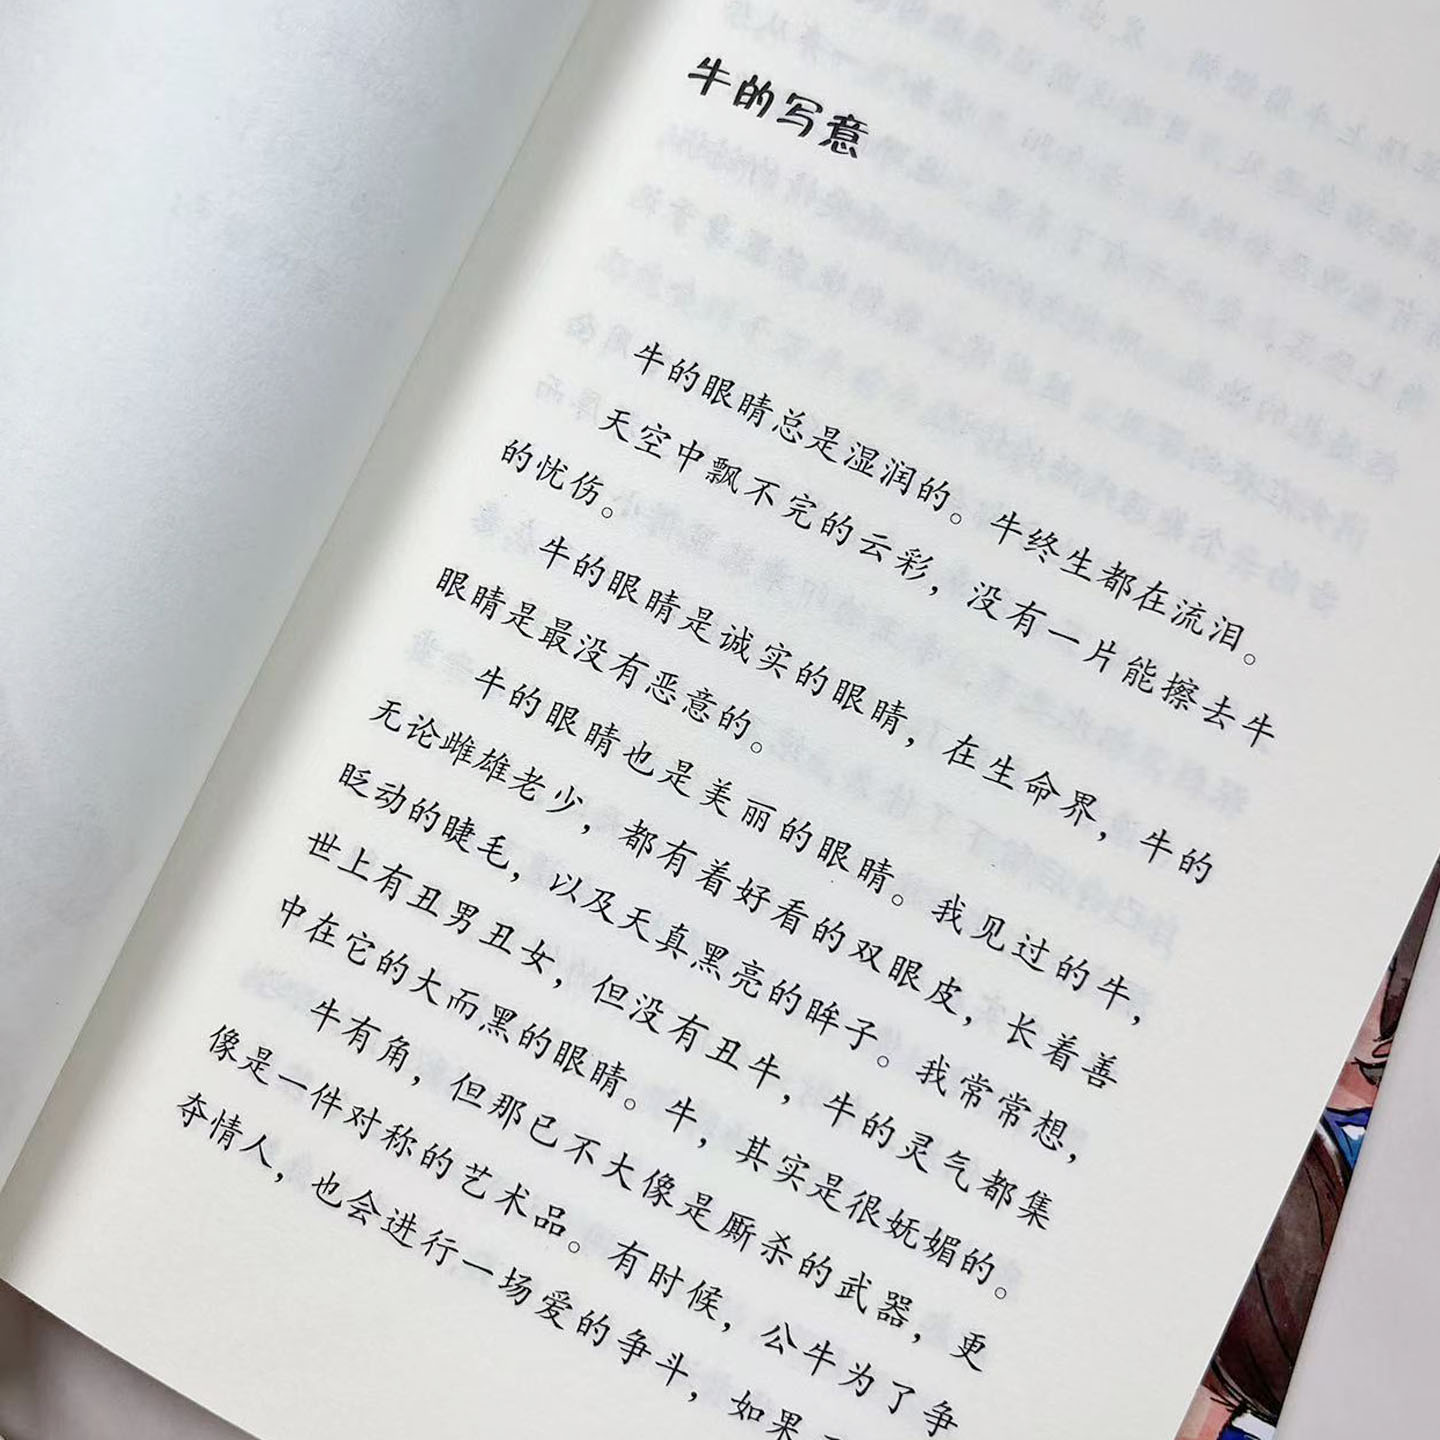 牛的写意
牛的眼睛总是湿润的。牛终生都在流泪。
天空中飘不完的云彩，没有一片能擦去牛
的忧伤。
牛的眼睛是诚实的眼睛，在生命界，牛的
眼睛是最没有恶意的。
牛的眼睛也是美丽的眼睛。我见过的牛，
无论雌雄老少，都有着好看的双眼皮，长着善
眨动的睫毛，以及天真黑亮的眸子。我常常想，
世上有丑男丑女，但没有丑牛，牛的灵气都集
中在它的大而黑的眼睛。牛，其实是很妩媚的。
牛有角，但那已不大像是厮杀的武器，更
像是一件对称的艺术品。有时候，公牛为了争
夺情人，也会进行一场爱的争斗，如果